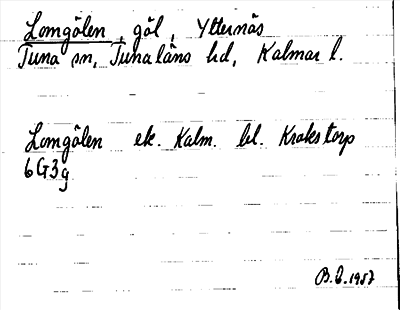 Lomgölen, göl, Ytternäs
Tuna sn, Tunaläns hd, Kalmar l.
Lomgölen ek. Kalm. bl. Krokstorp
6G3g
B.J. 1957